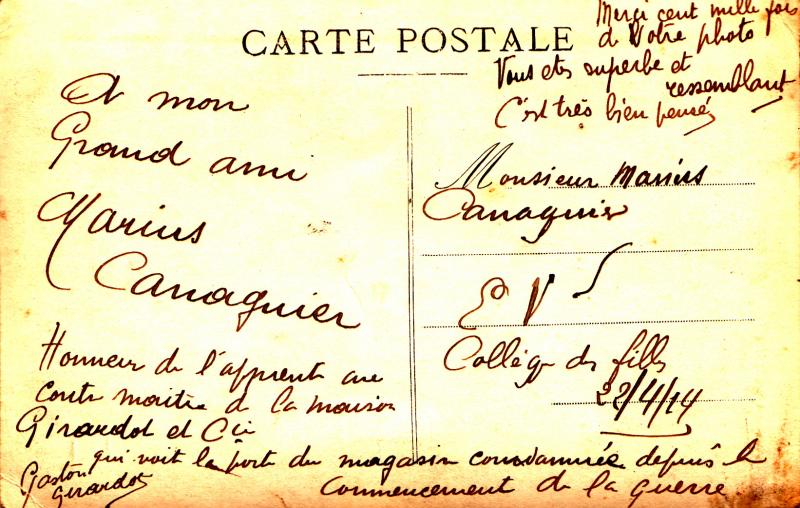 CARTE POSTALE
Merci cent mille fois
de Votre photo
Vous etes superbe et
ressemblant
C'est très bien pensé
A mon
Grand ami
Marius
Canaguier
Honneur de l'apprenti au
contr maitre de la maison
Girardot et Cie
qui voit la porte du magasin condamnée depuis le
commencement de la guerre
Gaston
Girardot
Monsieur Marius
Canaguier
E V
Collège des filles
22/4/14